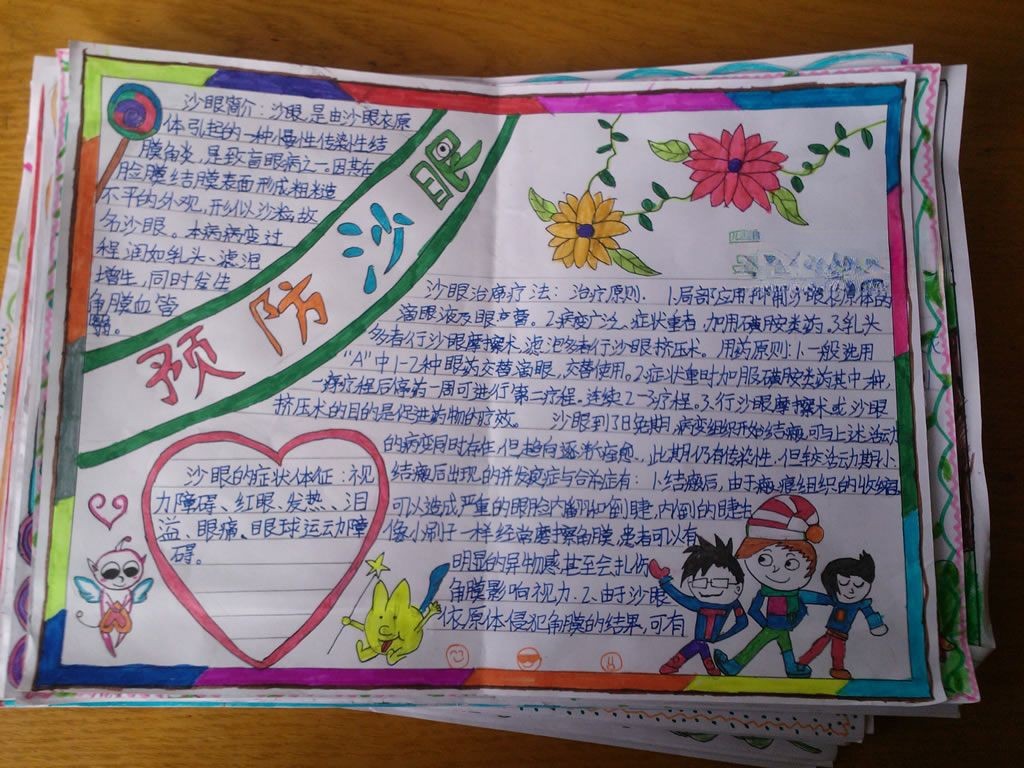 预防沙眼
沙眼简介：沙眼是由沙眼衣原
体引起的一种慢性传染性结
膜角炎，是致盲眼病之一。因其在
脸膜结膜表面形成粗糙
不平的外观，形似沙粒，故
名沙眼。本病病变过
程润如乳头、滤泡
增生，同时发生
角膜血管
翳。
沙眼治疗疗法：治疗原则. 1.局部应用抑制沙眼衣原体的
滴眼液及眼膏。2.病变广泛、症状重者，加用磺胺类药。3.乳头
多者行沙眼摩擦术，滤泡多者行沙眼挤压术。用药原则：1.一般选用
“A”中1-2种眼药交替滴眼，交替使用。2.症状重时加服磺胺类药其中一种，
一疗程后停药一周可进行第二疗程。连续2-3疗程。3.行沙眼摩擦术或沙眼
挤压术的目的是促进药物的疗效。 沙眼到了日免期，病变组织开始结瘢，可与上述活动
的病变同时存在，但趋向逐渐痊愈.，此期仍有传染性，但较活动期小
结瘢后出现的并发症与合 症有：1.结瘢后，由于瘢痕组织的收缩，
可以造成严重的眼脸内翻和倒睫，内倒的睫毛
像小刷子一样经常摩擦角膜，患者可以有
明显的异物感，甚至会扎伤
角膜影响视力. 2、由于沙眼
依原体侵犯角膜的结果，可有
沙眼的症状体征：视
力障碍、红眼、发热、泪
溢、眼痛、眼球运动障
碍。